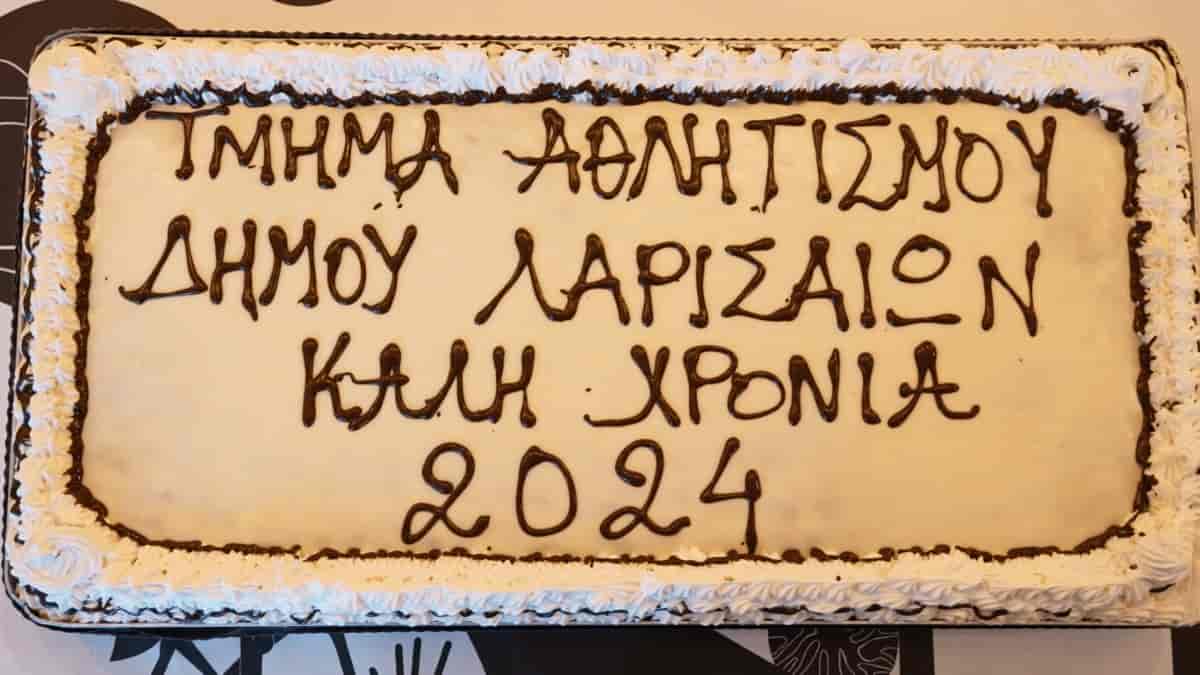 ΤΜΗΜΑ ΑΘΛΗΤΙΣΜΟΥ
ΔΗΜΟΥ ΛΑΡΙΣΑΙΩΝ
ΚΑΛΗ ΧΡΟΝΙΑ
2024